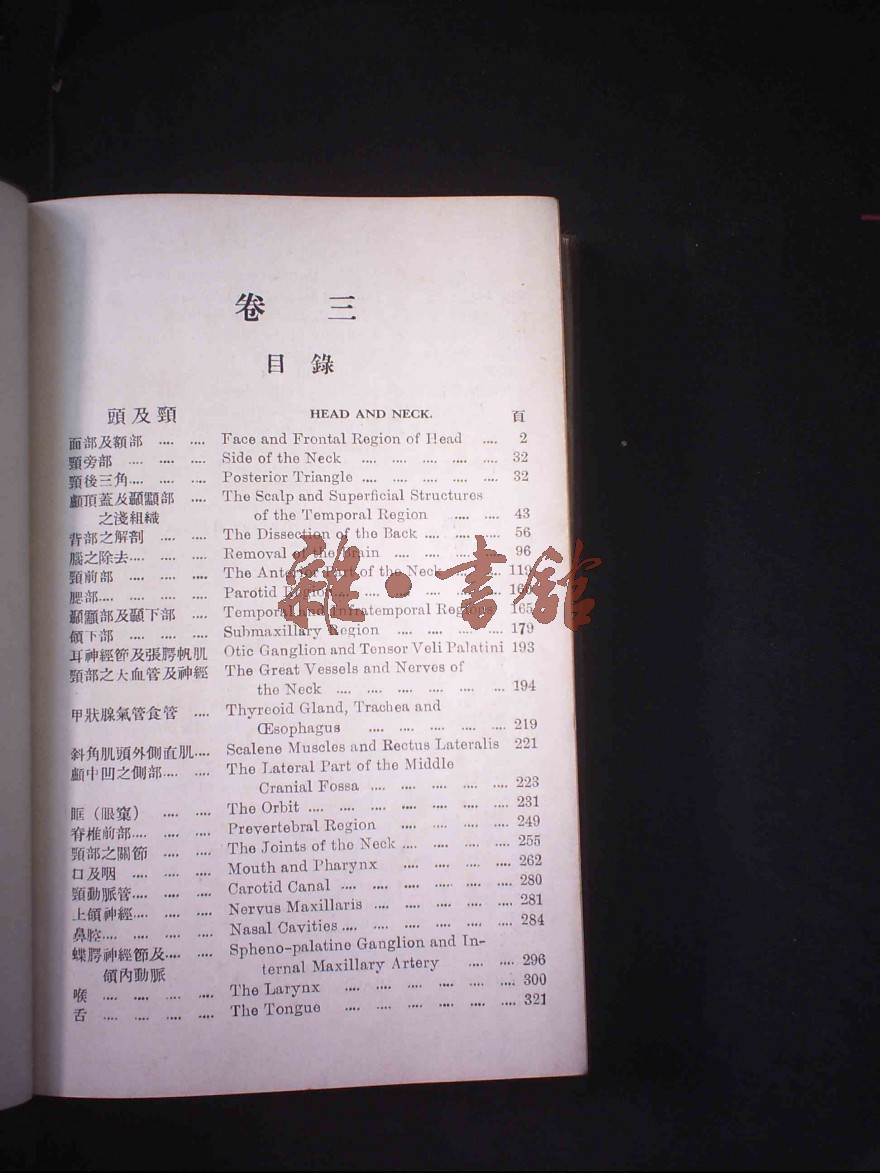 卷 三
目 錄
頭及頸 HEAD AND NECK. 頁
面部及額部 .... .... Face and Frontal Region of Head .... 2
頸旁部 .... .... .... Side of the Neck .... .... .... .... .... 32
頸後三角.... .... .... Posterior Triangle .... .... .... .... .... 32
顱頂蓋及顳顬部 .... The Scalp and Superficial Structures
之淺組織 of the Temporal Region .... .... 43
背部之解剖 .... .... The Dissection of the Back .... .... .... 56
腦之除去.... .... .... Removal of the Brain .... .... .... .... 96
頸前部 .... .... .... The Anterior Part of the Neck .... .... 119
腮部.... .... .... .... Parotid Region.... .... .... .... .... 160
顳顬部及顳下部 .... Temporal and Infratemporal Regions 165
頜下部 .... .... .... Submaxillary Region .... .... .... .... 179
耳神經節及張腭帆肌 Otic Ganglion and Tensor Veli Palatini 193
頸部之大血管及神經 The Great Vessels and Nerves of
the Neck .... .... .... .... .... .... ... 194
甲狀腺氣管食管 .... Thyreoid Gland, Trachea and
Œsophagus .... .... .... .... .... 219
斜角肌頭外側直肌.... Scalene Muscles and Rectus Lateralis 221
顱中凹之側部.... .... The Lateral Part of the Middle
Cranial Fossa .... .... .... .... .... 223
眶（眼窠） .... .... The Orbit .... .... .... .... .... .... .... 231
脊椎前部.... .... .... Prevertebral Region .... .... .... .... 249
頸部之關節 .... .... The Joints of the Neck .... .... .... .... 255
口及咽 .... .... .... Mouth and Pharynx .... .... .... .... 262
頸動脈管.... .... .... Carotid Canal .... .... .... .... .... .... 280
上頜神經.... .... .... Nervus Maxillaris .... .... .... .... .... 281
鼻腔.... .... .... .... Nasal Cavities.... .... .... .... .... .... 284
蝶腭神經節及.... .... Spheno-palatine Ganglion and In-
頜內動脈 ternal Maxillary Artery .... .... 296
喉 .... .... .... .... The Larynx .... .... .... .... .... .... 300
舌 .... .... .... .... The Tongue .... .... .... .... .... .... 321
雜·書館